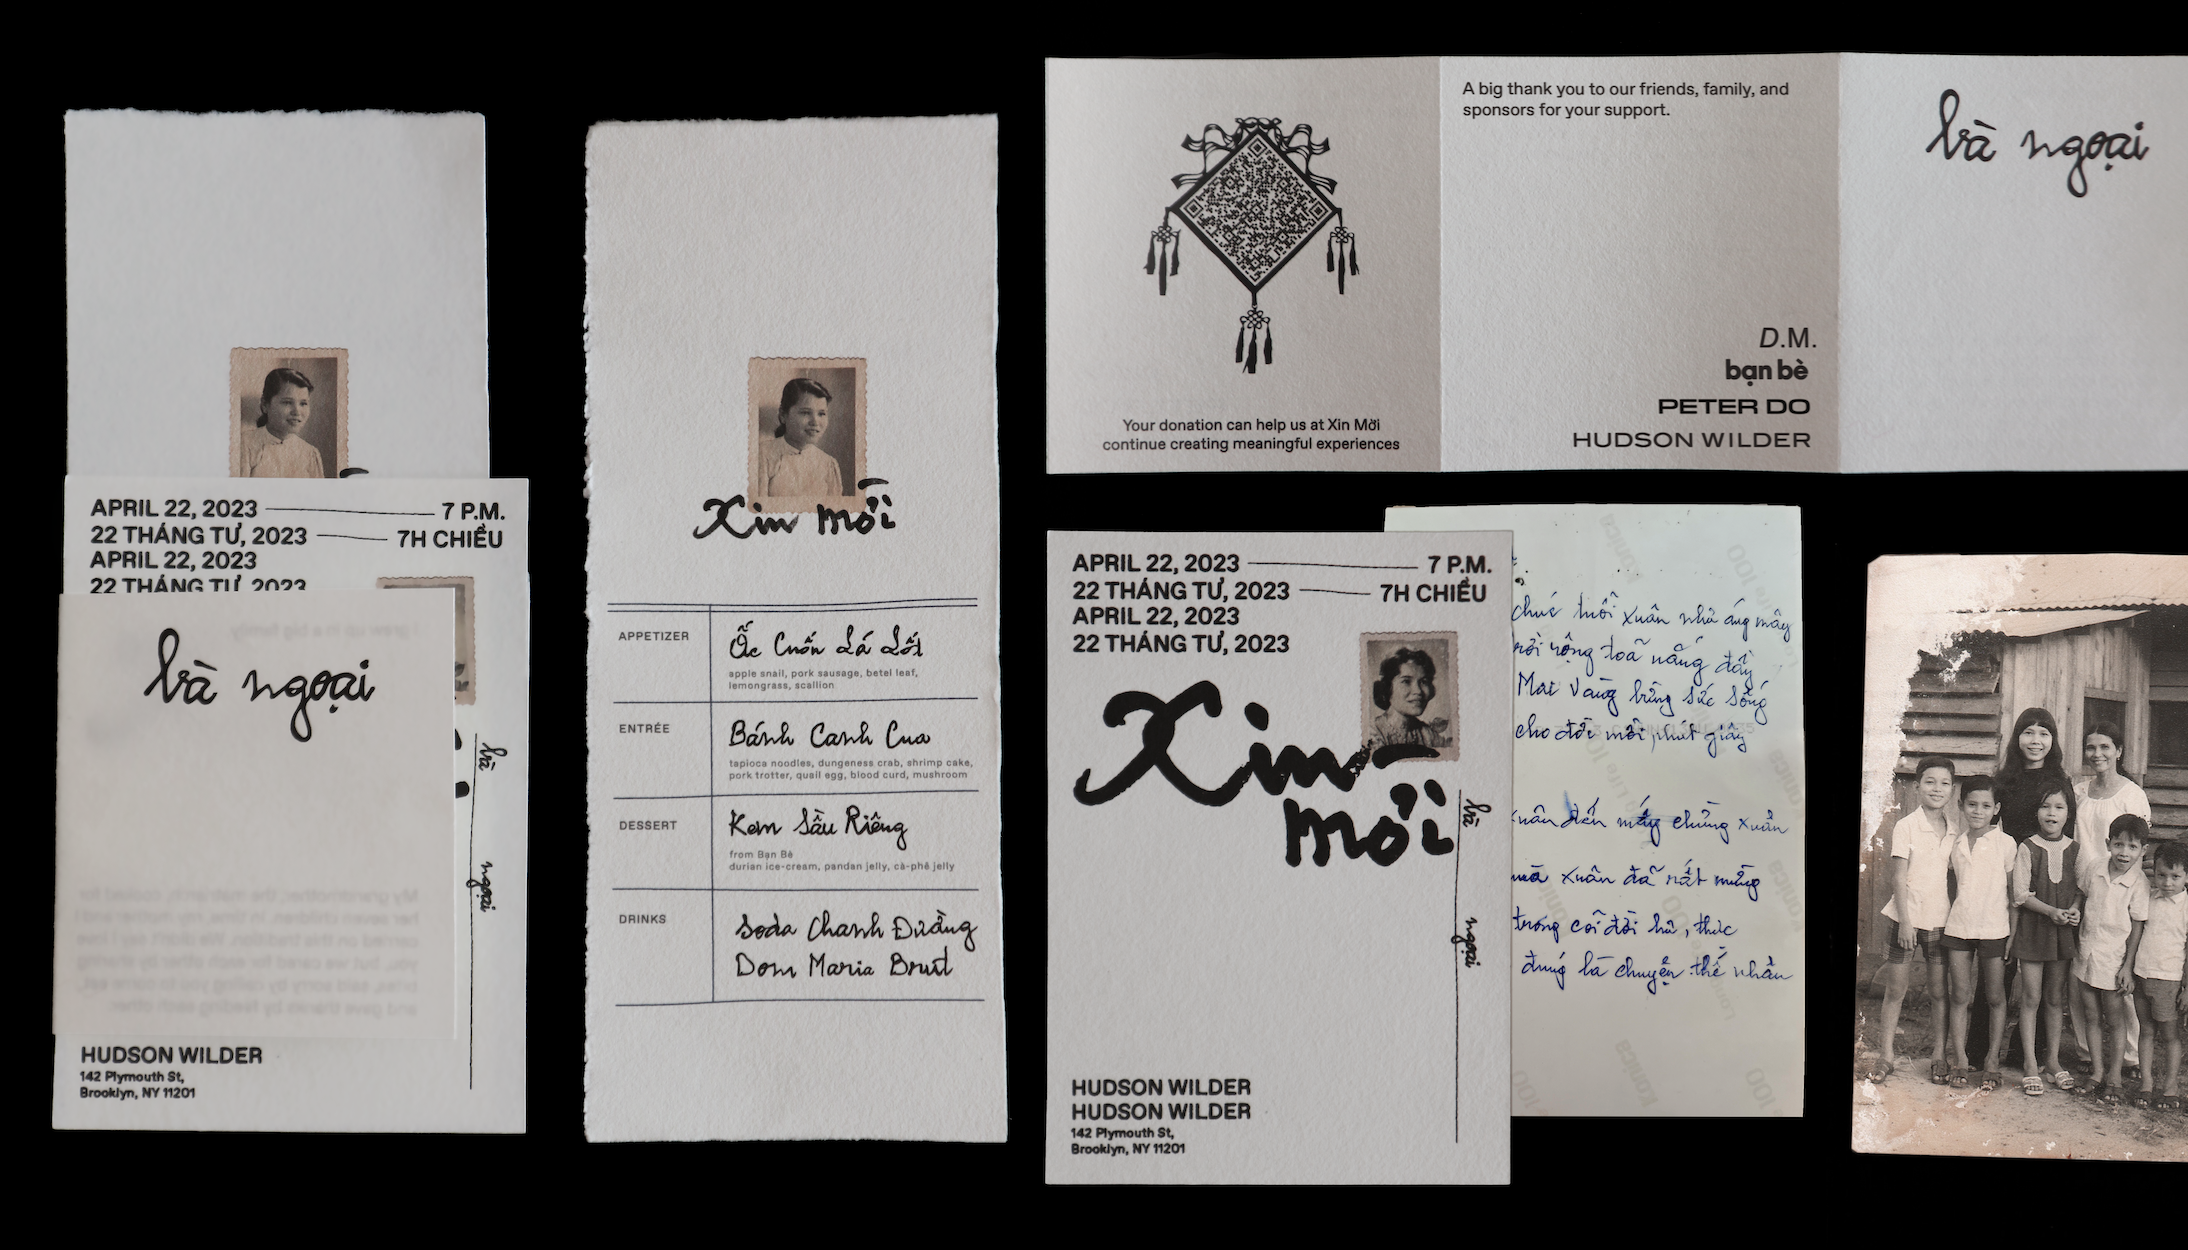 APRIL 22, 2023 7 P.M.
22 THÁNG TƯ, 2023 7H CHIỀU
APRIL 22, 2023
22 THÁNG TƯ, 2023
I grew up in a big family
bà ngoại
My grandmother, the matriarch, cooked for
her seven children. In time, my mother and I
carried on this tradition. We didn't say I love
you, but we cared for each other by sharing
bites, said sorry by calling you to come eat,
and gave thanks by feeding each other.
bà ngoại
HUDSON WILDER
142 Plymouth St,
Brooklyn, NY 11201
Xin mời
APPETIZER
Ốc Cuốn Lá Lốt
apple snail, pork sausage, betel leaf,
lemongrass, scallion
ENTRÉE
Bánh Canh Cua
tapioca noodles, dungeness crab, shrimp cake,
pork trotter, quail egg, blood curd, mushroom
DESSERT
Kem Sầu Riêng
from Bạn Bè
durian ice-cream, pandan jelly, cà-phê jelly
DRINKS
Soda Chanh Đường
Dom Maria Brut
Your donation can help us at Xin Mời
continue creating meaningful experiences
A big thank you to our friends, family, and
sponsors for your support.
D.M.
bạn bè
PETER DO
HUDSON WILDER
bà ngoại
APRIL 22, 2023 7 P.M.
22 THÁNG TƯ, 2023 7H CHIỀU
APRIL 22, 2023
22 THÁNG TƯ, 2023
Xin
mời
bà ngoại
HUDSON WILDER
HUDSON WILDER
142 Plymouth St,
Brooklyn, NY 11201
chúc tuổi xuân như áng mây
rộng toả nắng đầy
Mai Vàng bừng sức sống
cho đời mỗi phút giây
xuân đến mấy chừng xuân
mà xuân đã rất mừng
trong cõi đời hư, thực
đúng là chuyện thế nhân
Konica